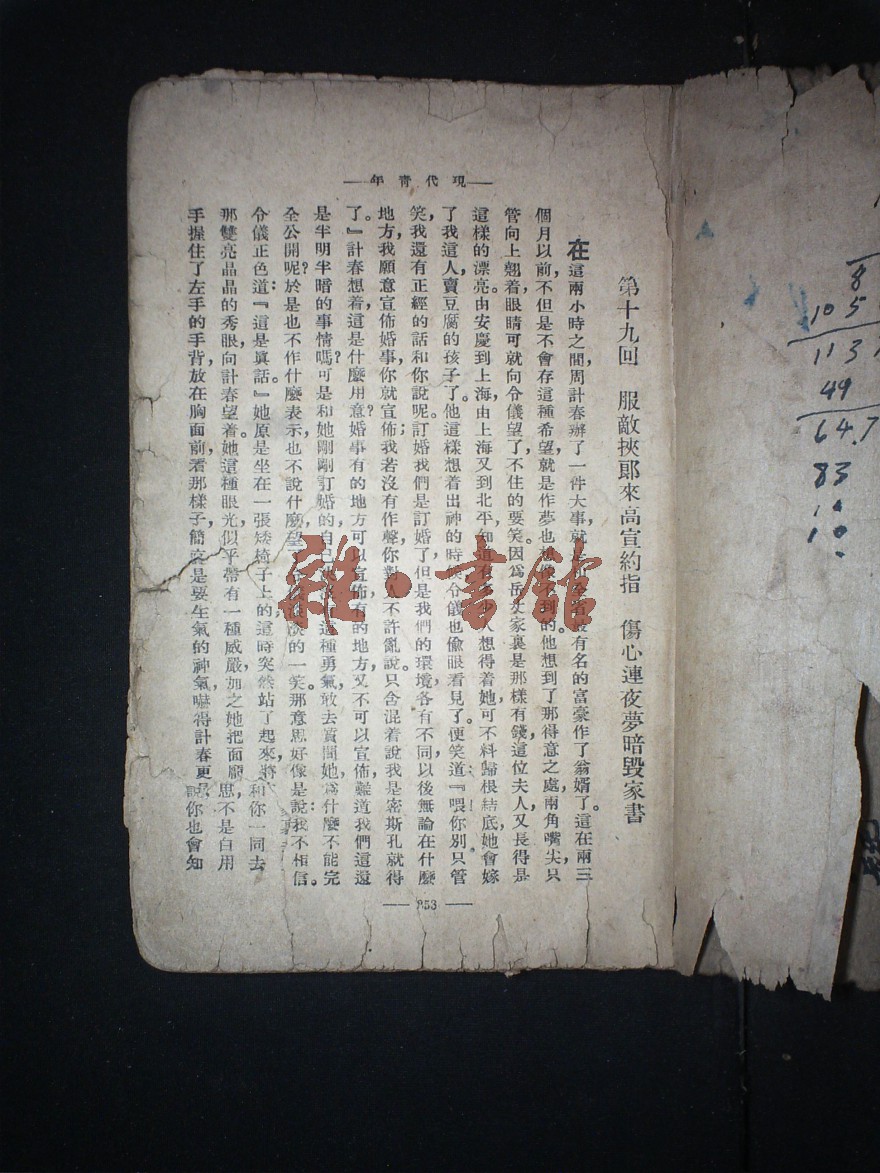 現代青年
第十九回 服敵挾郎來高宣約指 傷心連夜夢暗毀家書
在這兩小時之間，周計春辦了一件大事，就是 有名的富豪作了翁婿了。這在兩三
個月以前，不但是不會存這種希望，就是作夢也想 到的。他想到了那得意之處，兩角嘴尖，只
管向上翹着，眼睛可就向令儀望了，不住的要笑。因爲岳丈家裏是那樣有錢，這位夫人，又長得是
這樣的漂亮。由安慶到上海，由上海又到北平，知道有 人想得着她，可不料歸根結底，她會嫁
了我這人，賣豆腐的孩子了。他這樣想着出神的時候，令儀也偸眼看見了。便笑道：『喂！你別只管
笑，我還有正經的話和你說呢。訂婚我們是訂婚了，但是我們的環境，各有不同，以後無論在什麼
地方，我願意宣佈婚事，你就宣佈；我若沒有作聲，你對 人不許亂說。只含混着說我是密斯孔就得
了。』計春想着，這是什麼用意？婚事有的地方可以宣佈，有的地方，又不可以宣佈，難道我們這還
是半明半暗的事情嗎？可是和她剛剛訂婚的，自己 這種勇氣，敢去質問她，爲什麼不能完
全公開呢？於是也不作什麼表示，也不說什麼，望了 的一笑。那意思好像是說，我不相信。
令儀正色道：『這是眞話。』她原是坐在一張矮椅子上的，這時突然站了起來，將 和你一同去
那雙亮晶晶的秀眼，向計春望着。她這種眼光，似乎帶有一種威嚴，加之她把面龐 思，不是白用
手握住了左手的手背，放在胸面前，看那樣子，簡直是要生氣的神氣，嚇得計春更 你也會知
853
雜·書館
8
10 5
113
49
64.7
83
10